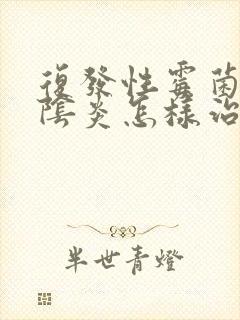 復發性霉菌
陰炎怎樣治
半世青燈